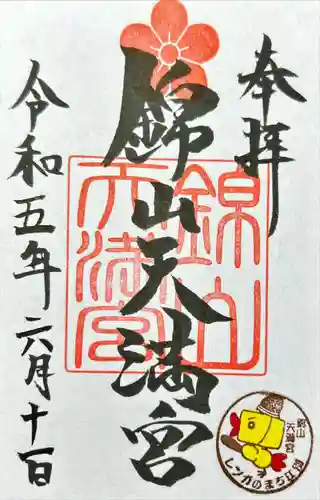 奉拝
錦山天満宮
令和五年六月十日
錦山
天満宮
錦山
天満宮
レンガのまち江別